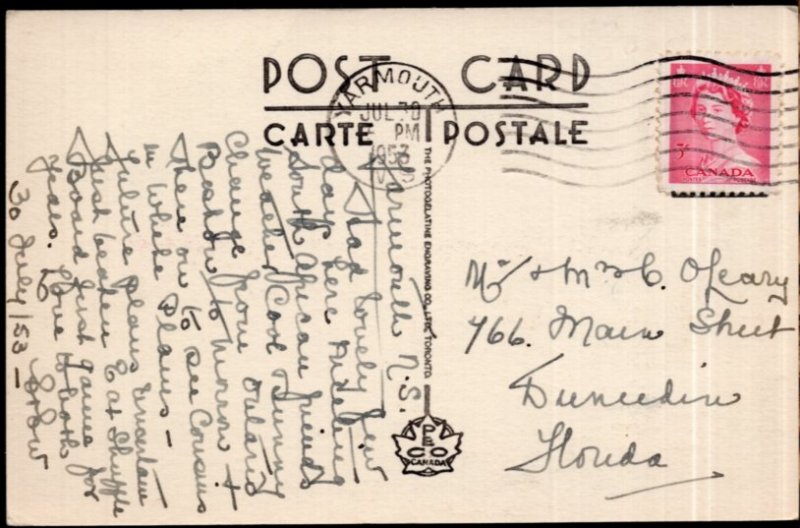 POST CARD
CARTE POSTALE
YARMOUTH
JUL 30
PM
1953
N.S.
CANADA
3
THE PHOTOGELATINE ENGRAVING CO. LTD. TORONTO.
PECO
CANADA
Yarmouth N.S.
Had lovely few
days here meeting
South African friends
Weather Cool & Sunny
Change from Ontario
Boston to-morrow &
then on to see Cousins
in White Plains —
Future plans uncertain
Just beaten E at Shuffle
Board first game for
years. Love to both
30 July/53 —
Mr & Mrs C. O'Leary
766. Main Street
Dunedin
Florida